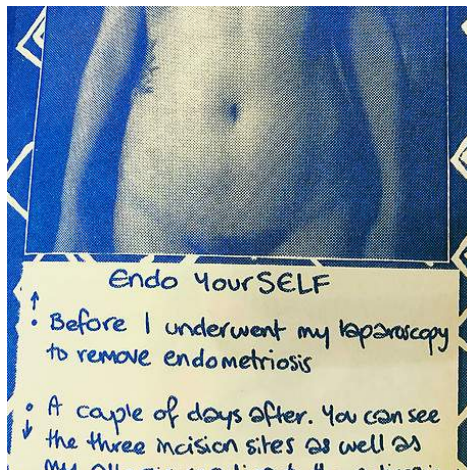 Endo YourSELF
↑
• Before I underwent my laparoscopy
to remove endometriosis
• A couple of days after. You can see
↓ the three incision sites as well as
my allergic reaction to the